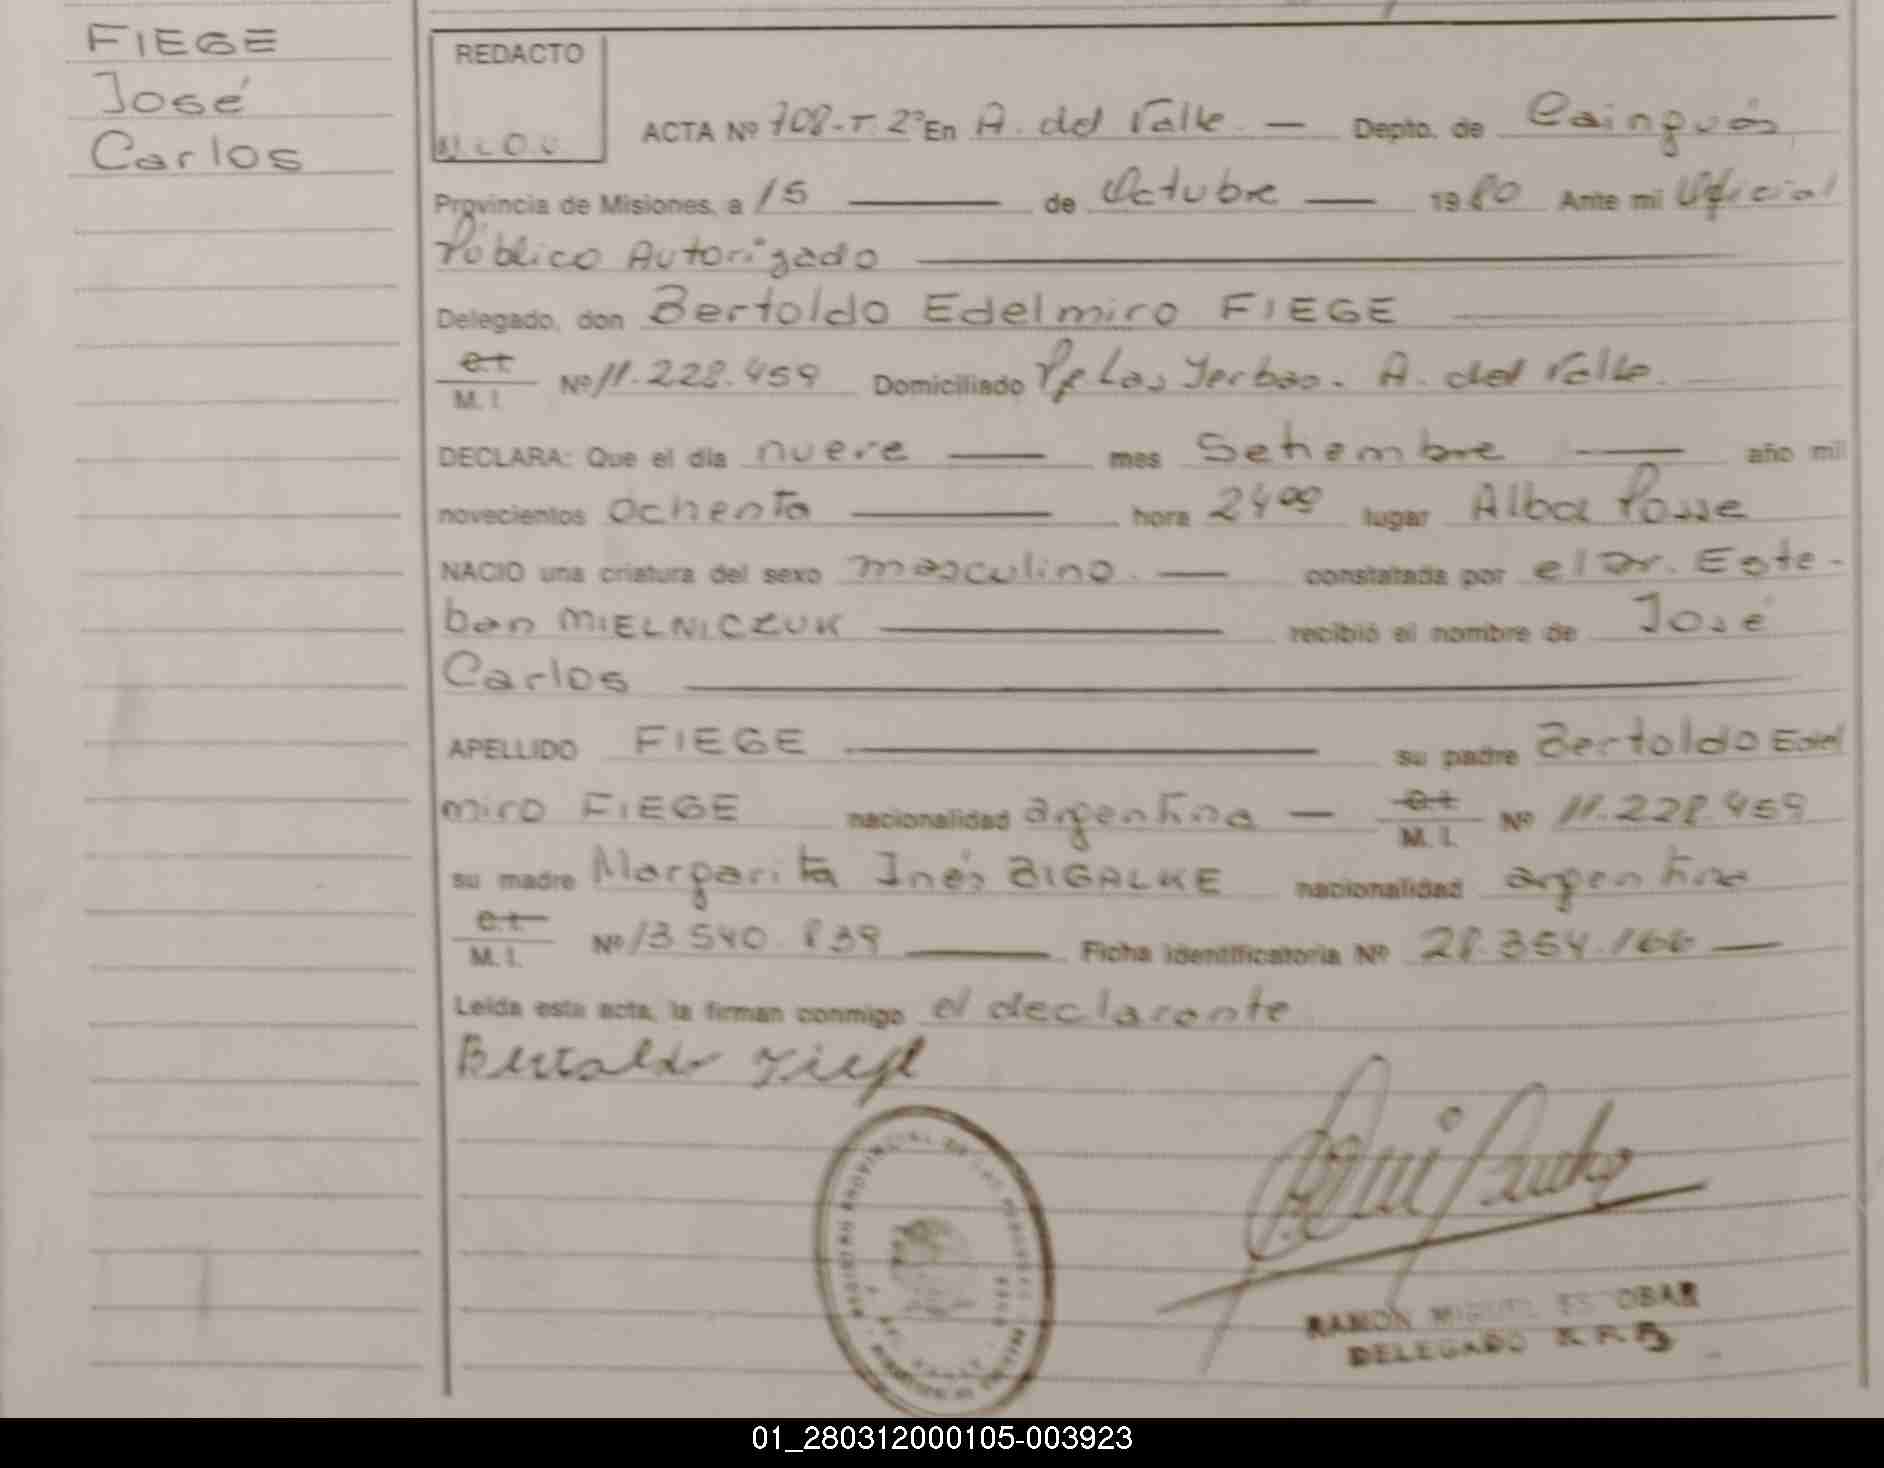 FIEGE
José
Carlos
REDACTO
ACTA Nº 708-T. 2º En A. del Valle. — Depto. de Cainguás
Provincia de Misiones, a 15 — de Octubre — 1980 Ante mi Oficial
Público Autorizado
Delegado, don Bertoldo Edelmiro FIEGE
C.I. M. I. Nº 11.228.459 Domiciliado Las Yerbas. A. del Valle.
DECLARA: Que el día nueve — mes Setiembre — año mil
novecientos ochenta — hora 24 00 lugar Alba Posse
NACIO una criatura del sexo masculino. — constatada por el Dr. Este-
ban MIELNICZUK — recibió el nombre de José
Carlos
APELLIDO FIEGE — su padre Bertoldo Edel
miro FIEGE nacionalidad argentina — C.I. M. I. Nº 11.228.459
su madre Margarita Inés BIGALKE nacionalidad argentina
C.I. M. I. Nº 13.540.839 — Ficha identificatoria Nº 28.354.166 —
Leída esta acta, la firman conmigo el declarante
Bertoldo Fiege
RAMON MIGUEL ESCOBAR
DELEGADO R.P.
01_280312000105-003923